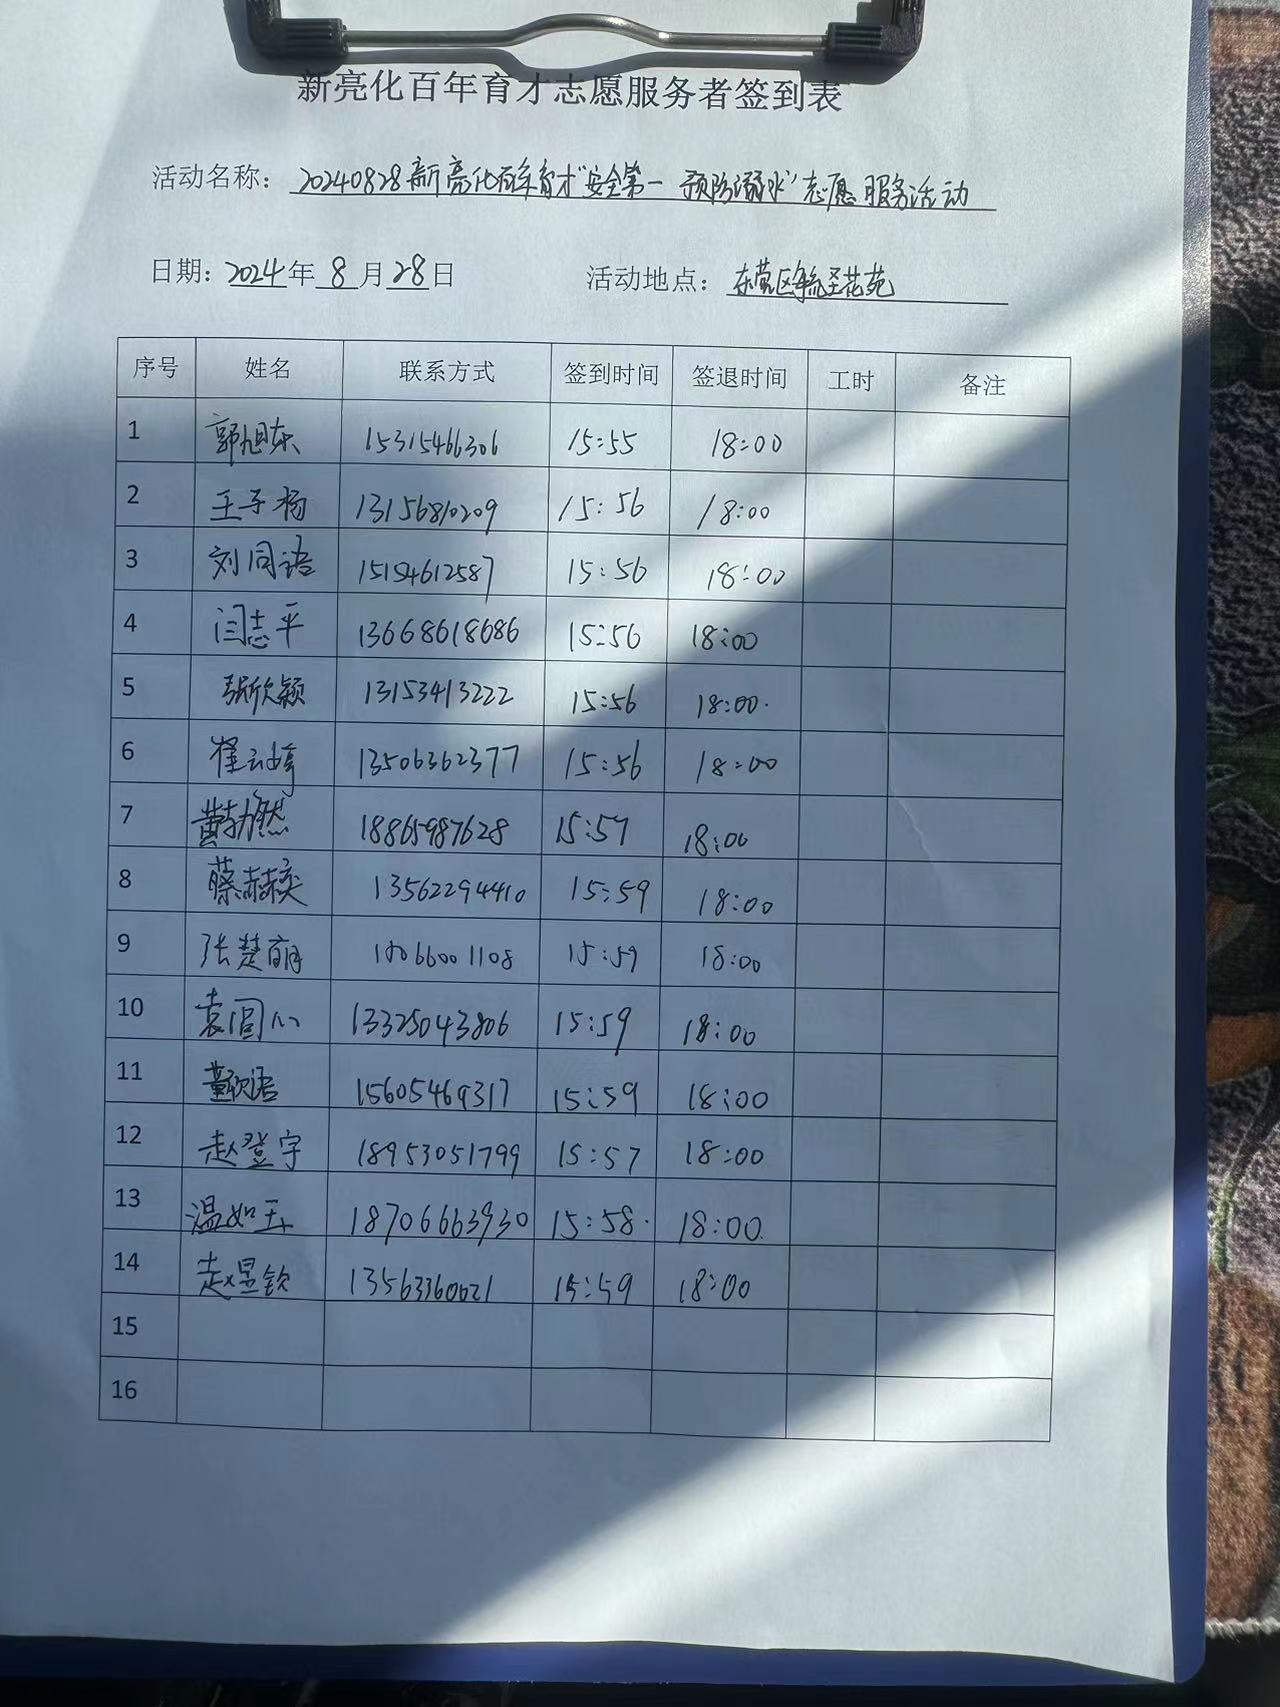 新亮化百年育才志愿服务者签到表
活动名称: 20240828新亮化百年育才"安全第一 预防溺水"志愿服务活动
日期: 2024年 8 月 28 日 活动地点: 东营区花苑
序号 姓名 联系方式 签到时间 签退时间 工时 备注
1 郭旭东 15315466306 15:55 18:00
2 王子杨 13156810209 15:56 18:00
3 刘同语 15154612587 15:56 18:00
4 闫志平 13668618686 15:56 18:00
5 张欣颖 13153413222 15:56 18:00
6 崔云崎 13506362377 15:56 18:00
7 黄勃然 18865987628 15:57 18:00
8 蔡赫奕 13562294410 15:59 18:00
9 张楚萌 15:59 18:00
10 袁闾心 13325043806 15:59 18:00
11 董欣语 15605469317 15:59 18:00
12 赵登宇 18953051799 15:57 18:00
13 温如玉 18706663930 15:58 18:00
14 赵昱钦 13563360621 15:59 18:00
15
16